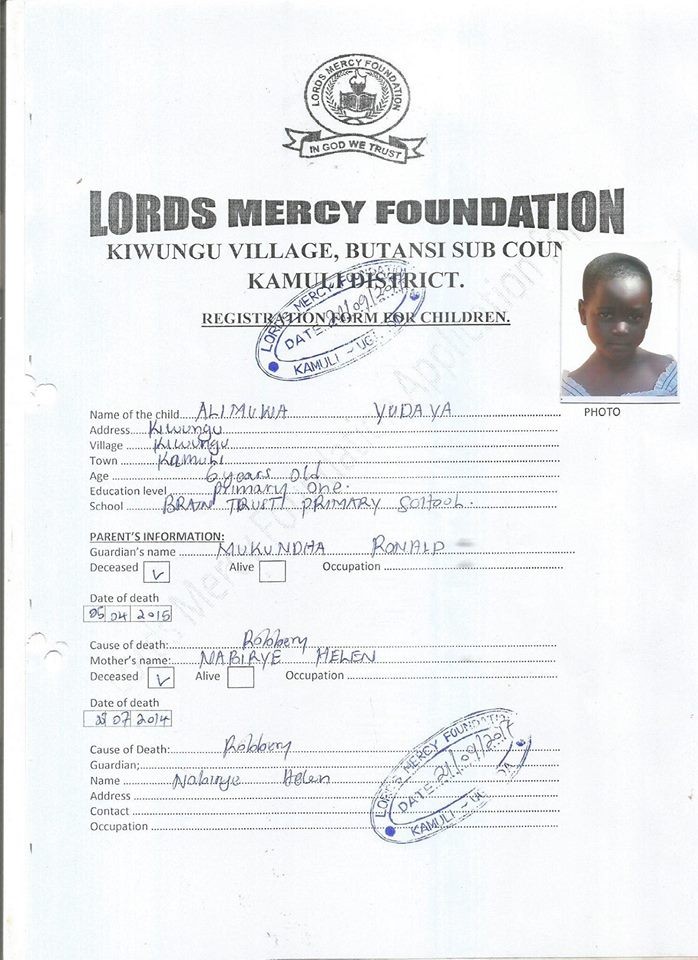 LORDS MERCY FOUNDATION
IN GOD WE TRUST
LORDS MERCY FOUNDATION
KIWUNGU VILLAGE, BUTANSI SUB COUN
KAMULI DISTRICT.
REGISTRATION FORM FOR CHILDREN.
LORDS MERCY FOUNDATION
DATE: 21/09/2017
KAMULI - UGANDA
PHOTO
Name of the child ALIMUWA YUDAYA
Address Kiwungu
Village Kiwungu
Town Kamuli
Age 6 years old
Education level primary one.
School BRAIN TRUST PRIMARY SCHOOL.
PARENT'S INFORMATION:
Guardian's name MUKUNDHA RONALD
Deceased Alive Occupation
Date of death
05 04 2015
Cause of death: Robbery
Mother's name: NABIRYE HELEN
Deceased Alive Occupation
Date of death
07 2014
Cause of Death: Robbery
Guardian;
Name Nabirye Helen
Address
Contact
Occupation
LORDS MERCY FOUNDATION
DATE: 21/09/2017
KAMULI - UGANDA